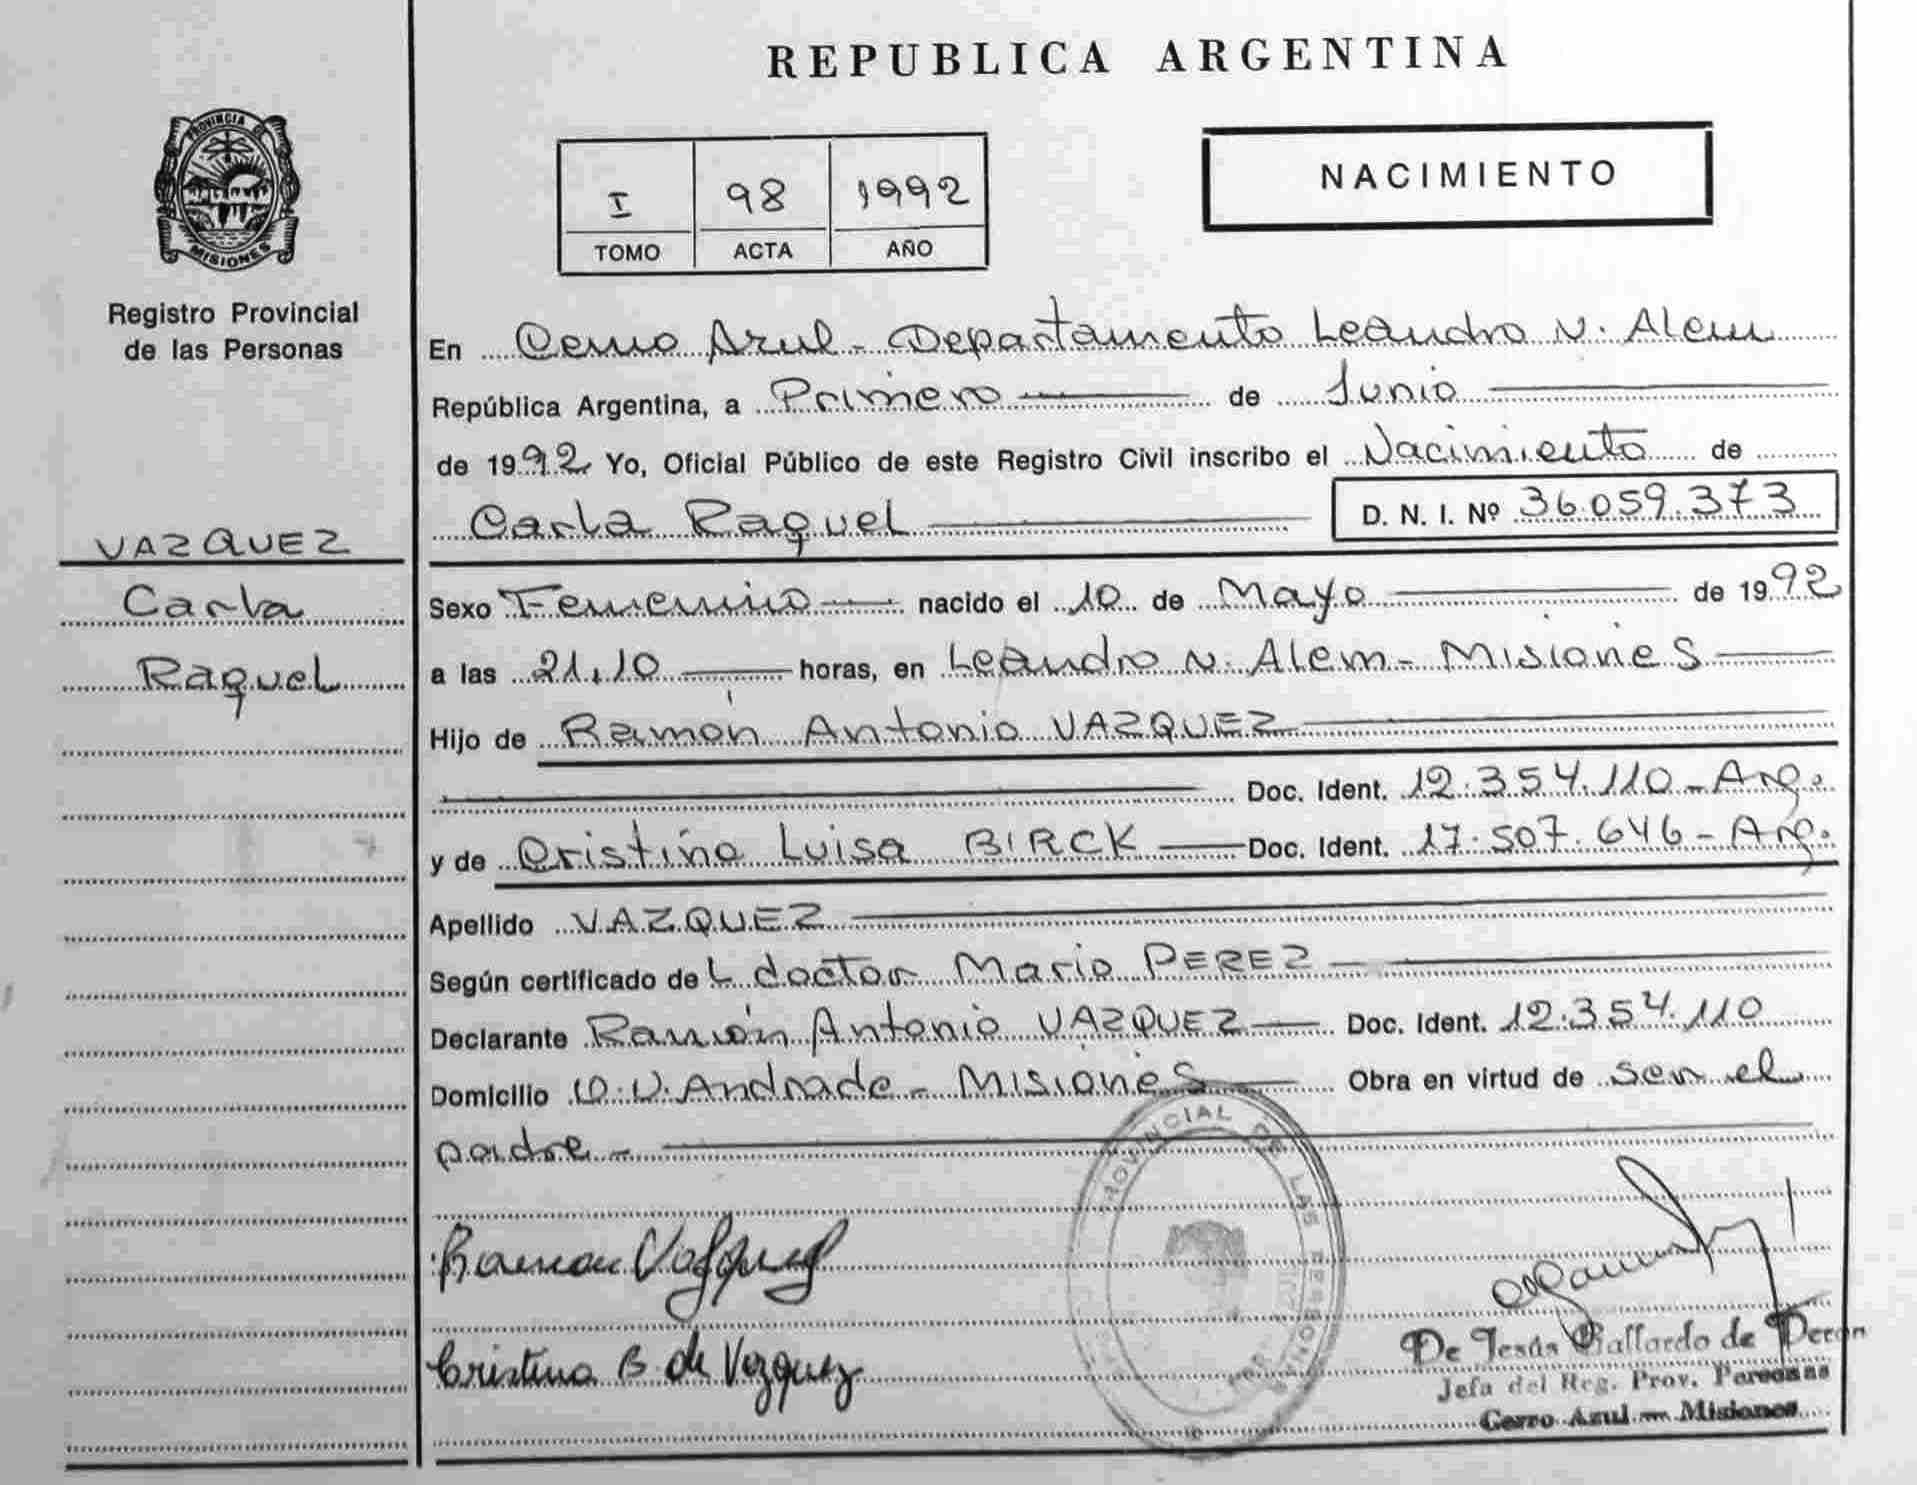 REPUBLICA ARGENTINA
PROVINCIA DE
MISIONES
Registro Provincial
de las Personas
VAZQUEZ
Carla
Raquel
I 98 1992
TOMO ACTA AÑO
NACIMIENTO
En Cerro Azul - Departamento Leandro N. Alem
República Argentina, a Primero de Junio
de 1992 Yo, Oficial Público de este Registro Civil inscribo el Nacimiento de
Carla Raquel D. N. I. Nº 36.059.373
Sexo Femenino nacido el 10 de Mayo de 1992
a las 21,10 horas, en Leandro N. Alem - Misiones
Hijo de Ramón Antonio VAZQUEZ
Doc. Ident. 12.354.110 - Arg.
y de Cristina Luisa BIRCK Doc. Ident. 17.507.646 - Arg.
Apellido VAZQUEZ
Según certificado del doctor Mario PEREZ
Declarante Ramón Antonio VAZQUEZ Doc. Ident. 12.354.110
Domicilio O.V. Andrade - Misiones Obra en virtud de ser el
padre -
Ramon Vazquez
Cristina B. de Vazquez
PROVINCIAL DE LAS PERSONAS
De Jesús Gallardo de Perón
Jefa del Reg. Prov. Personas
Cerro Azul - Misiones